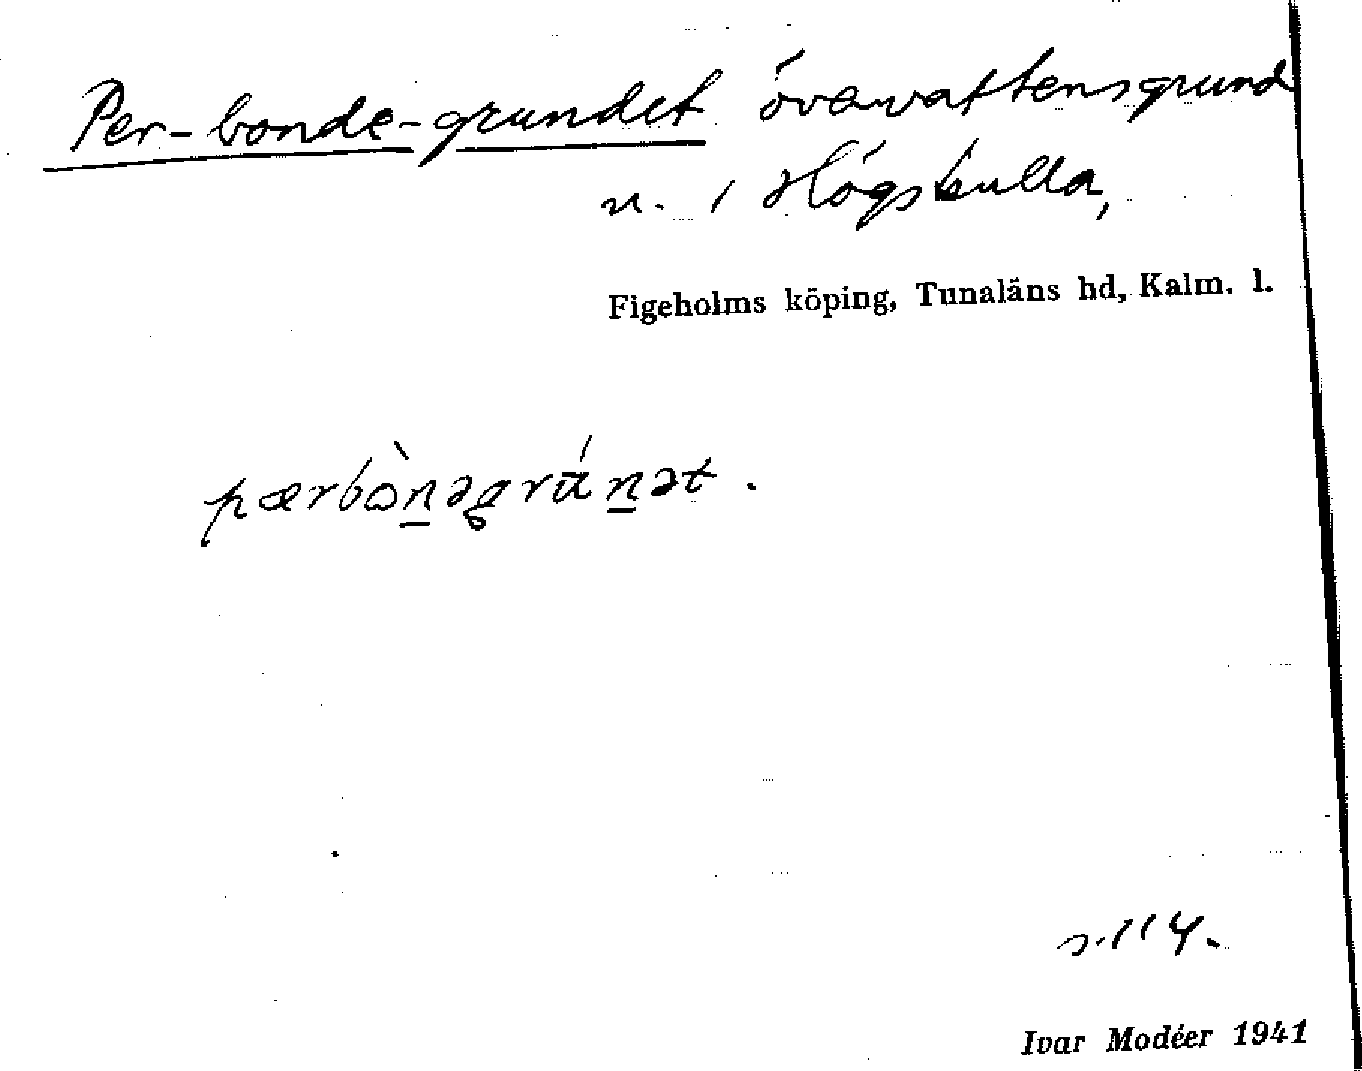 Per-bonde-grundet övervattensgrund
n. i Högskulla,
Figeholms köping, Tunaläns hd, Kalm. l.
pærbòn̲əgrún̲ət.
s. 114.
Ivar Modéer 1941